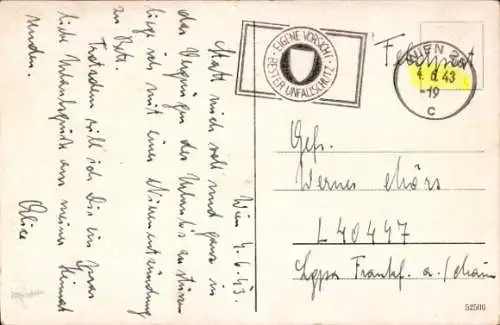 Wien 4.6.43.
Statt mich voll und ganz in
das Vergnügen des Urlaubs zu stürzen
liege ich mit einer Nierenentzündung
zu Bett.
Trotzdem will ich Dir ein paar
liebe Urlaubsgrüße aus meiner Heimat
senden.
Alice
EIGENE VORSICHT
BESTER UNFALLSCHUTZ
Feldpost
WIEN
4. 6. 43
-19
c
Gefr.
Werner
L 40497
Lgpa Frankf. a./Main
52506